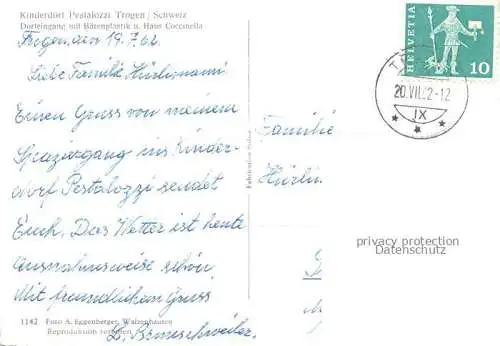 Kinderdorf Pestalozzi Trogen / Schweiz
Dorfeingang mit Bärenplastik u. Haus Coccinella
Trogen, den 19.7.62.
Liebe Familie Hürlimann!
Einen Gruss von meinem
Spaziergang ins Kinder-
dorf Pestalozzi sendet
Euch. Das Wetter ist heute
ausnahmsweise schön
Mit freundlichem Gruss
1142 Foto A. Eggenberger, Walzenhausen
Reproduktion verboten
HELVETIA
10
20.VII.62-12
IX
Familie
Hürli
privacy protection
Datenschutz